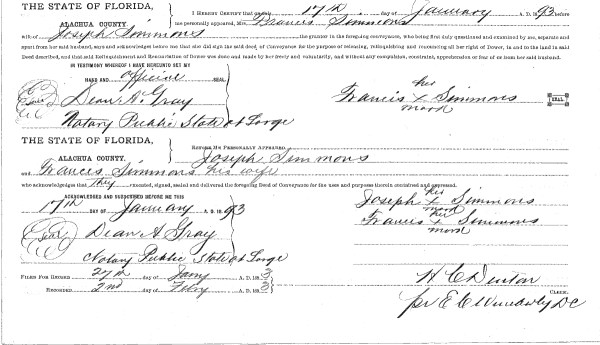 THE STATE OF FLORIDA,
ALACHUA COUNTY.
I HEREBY CERTIFY That on this 17th day of January A. D. 93 before
me personally appeared, Mrs. Francis Simmons
wife of Joseph Simmons the grantor in the foregoing conveyance, who being first duly questioned and examined by me, separate and
apart from her said husband, says and acknowledges before me that she did sign the said deed of Conveyance for the purpose of releasing, relinquishing and renouncing all her right of Dower, in and to the land in said
Deed described, and that said Relinquishment and Renunciation of Dower was done and made by her freely and voluntarily, and without any compulsion, constraint, apprehension or fear of or from her said husband.
IN TESTIMONY WHEREOF I HAVE HEREUNTO SET MY
HAND AND official SEAL,
Dean A. Gray
Notary Public State at Large
her
Francis x Simmons
mark
SEAL
THE STATE OF FLORIDA,
ALACHUA COUNTY.
BEFORE ME PERSONALLY APPEARED Joseph Simmons
and Francis Simmons his wife
who acknowledges that They executed, signed, sealed and delivered the foregoing Deed of Conveyance for the uses and purposes therein contained and expressed.
ACKNOWLEDGED AND SUBSCRIBED BEFORE ME THIS
17th DAY OF January A. D. 1893
(Seal) Dean A Gray
Notary Public State at Large
his
Joseph x Simmons
mark
her
Francis x Simmons
mark
FILED FOR RECORD 27th day of Jany A. D. 1893
RECORDED 2nd day of Feby A. D. 1893
H C Denton
CLERK.
pr E C DC